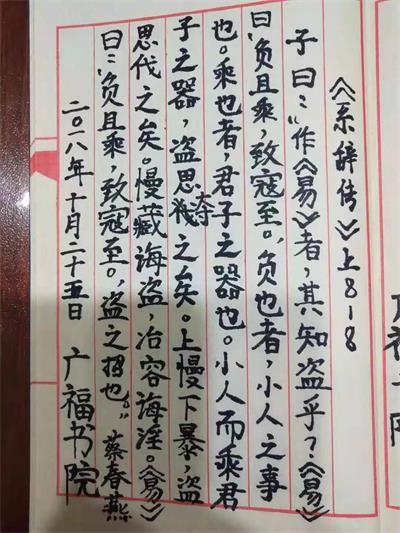 《系辞传》上8-8
子曰："作《易》者，其知盗乎？《易》
曰'负且乘，致寇至。'负也者，小人之事
也。乘也者，君子之器也。小人而乘君
子之器，盗思夺之矣。上慢下暴，盗
思伐之矣。慢藏诲盗，冶容诲淫。《易》
曰：'负且乘，致寇至。'盗之招也。"蔡春燕
二〇一八年十月二十五日 广福书院